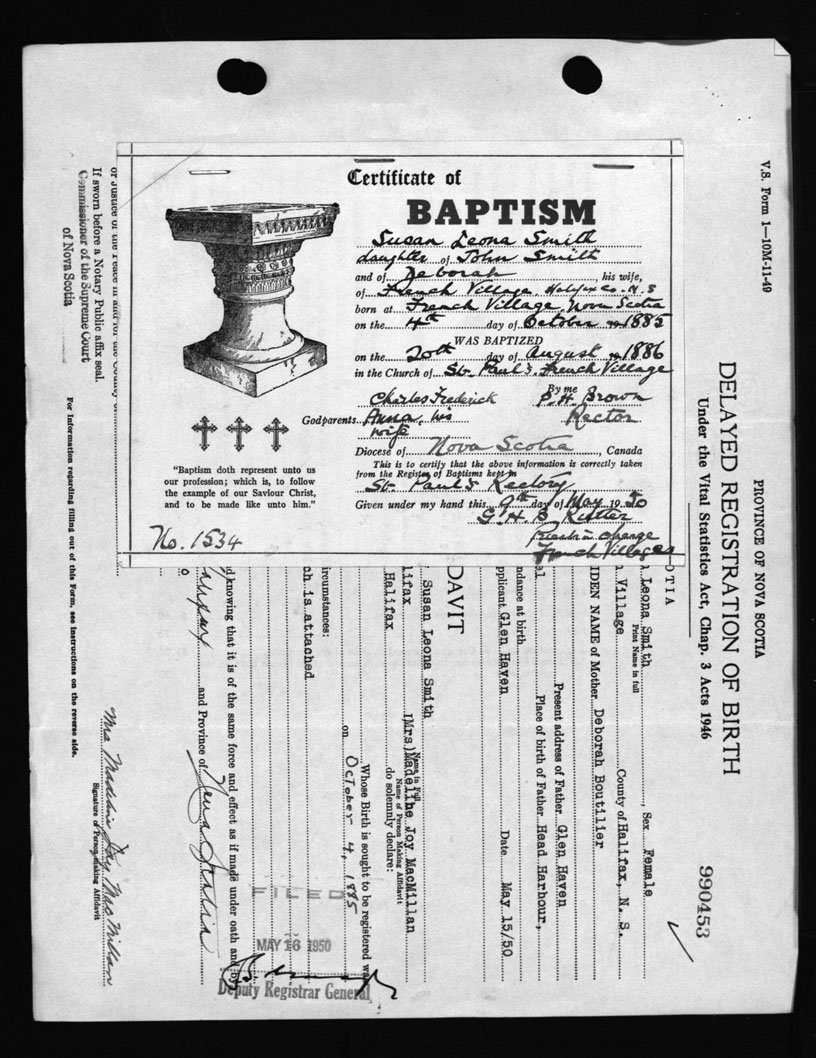 Certificate of
BAPTISM
Susan Leona Smith
daughter of John Smith
and of Deborah, his wife,
of French Village, Halifax Co. N. S
born at French Village, Nova Scotia
on the 4th day of October 1885
WAS BAPTIZED
on the 20th day of August 1886
in the Church of St. Paul's, French Village
By me
Charles Frederick
Godparents Anna, his
wife
Brown
Rector
Diocese of Nova Scotia, Canada
This is to certify that the above information is correctly taken
from the Register of Baptisms kept in
St. Paul's Rectory
Given under my hand this 9th day of May 1950
Priest in charge
French Village
"Baptism doth represent unto us
our profession; which is, to follow
the example of our Saviour Christ,
and to be made like unto him."
No. 1534
V.S. Form 1—10M-11-49
PROVINCE OF NOVA SCOTIA
DELAYED REGISTRATION OF BIRTH
Under the Vital Statistics Act, Chap. 3 Acts 1946
990453
OTIA
Leona Smith, Sex Female
Print Name in full
Village County of Halifax, N. S.
IDEN NAME of Mother Deborah Boutilier
Present address of Father Glen Haven
Place of birth of Father Head Harbour,
el
ndance at birth
pplicant Glen Haven Date May 15/50
DAVIT
Susan Leona Smith
Name in Full
lifax (Mrs) Madeline Joy MacMillan
Name of Person Making Affidavit
Halifax do solemnly declare:
Whose Birth is sought to be registered was
on October 4, 1885
ircumstances:
ch is attached
d knowing that it is of the same force and effect as if made under oath and by
and Province of Nova Scotia
FILED
MAY 16 1950
Deputy Registrar General
or Justice of the Peace in and for the County of
If sworn before a Notary Public affix seal.
Commissioner of the Supreme Court
of Nova Scotia
For Information regarding filling out of this Form, see instructions on the reverse side.
Mrs Madeline Joy MacMillan
Signature of Person Making Affidavit